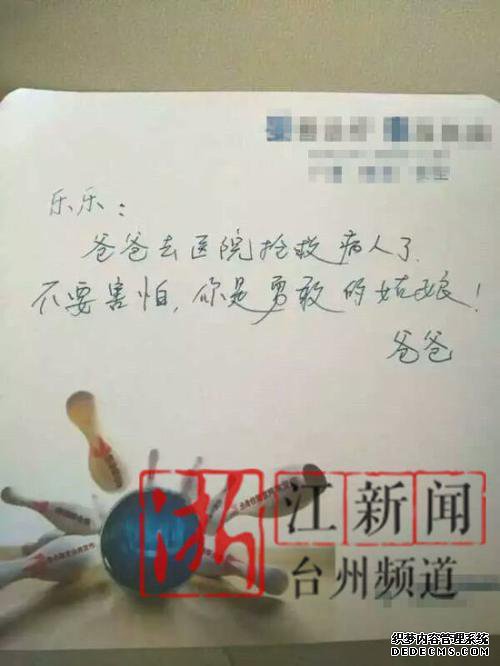 乐乐：
爸爸去医院抢救病人了.
不要害怕,你是勇敢的姑娘！
爸爸
浙江新闻
台州频道
织梦内容管理系统
DEDECMS.COM